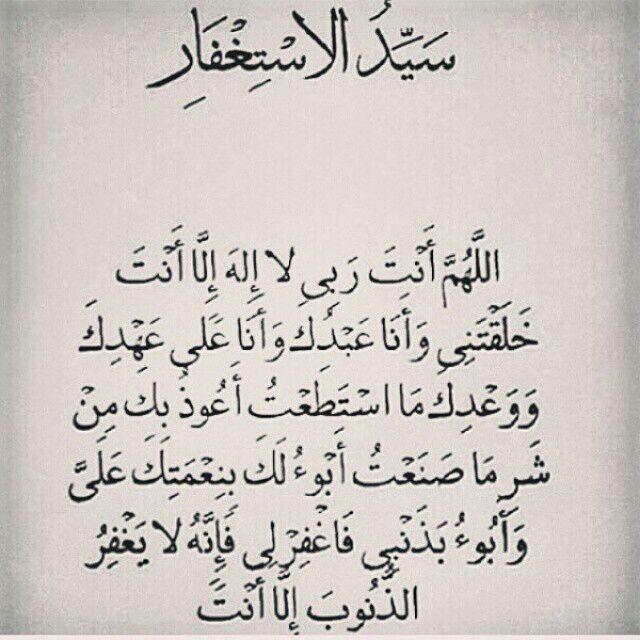 سَيِّدُ الاسْتِغْفَارِ
اللَّهُمَّ أَنْتَ رَبِي لا إِلهَ إِلَّا أَنْتَ
خَلَقْتَنِي وَأَنَا عَبْدُكَ وَأَنَا عَلَى عَهْدِكَ
وَوَعْدِكَ مَا اسْتَطَعْتُ أَعُوذُ بِكَ مِنْ
شَرِ مَا صَنَعْتُ أَبُوءُ لَكَ بِنِعْمَتِكَ عَلَيَّ
وَأَبُوءُ بَذَنْبِي فَاغْفِرْ لِي فَإِنَّهُ لا يَغْفِرُ
الذُّنُوبَ إِلَّا أَنْتَ